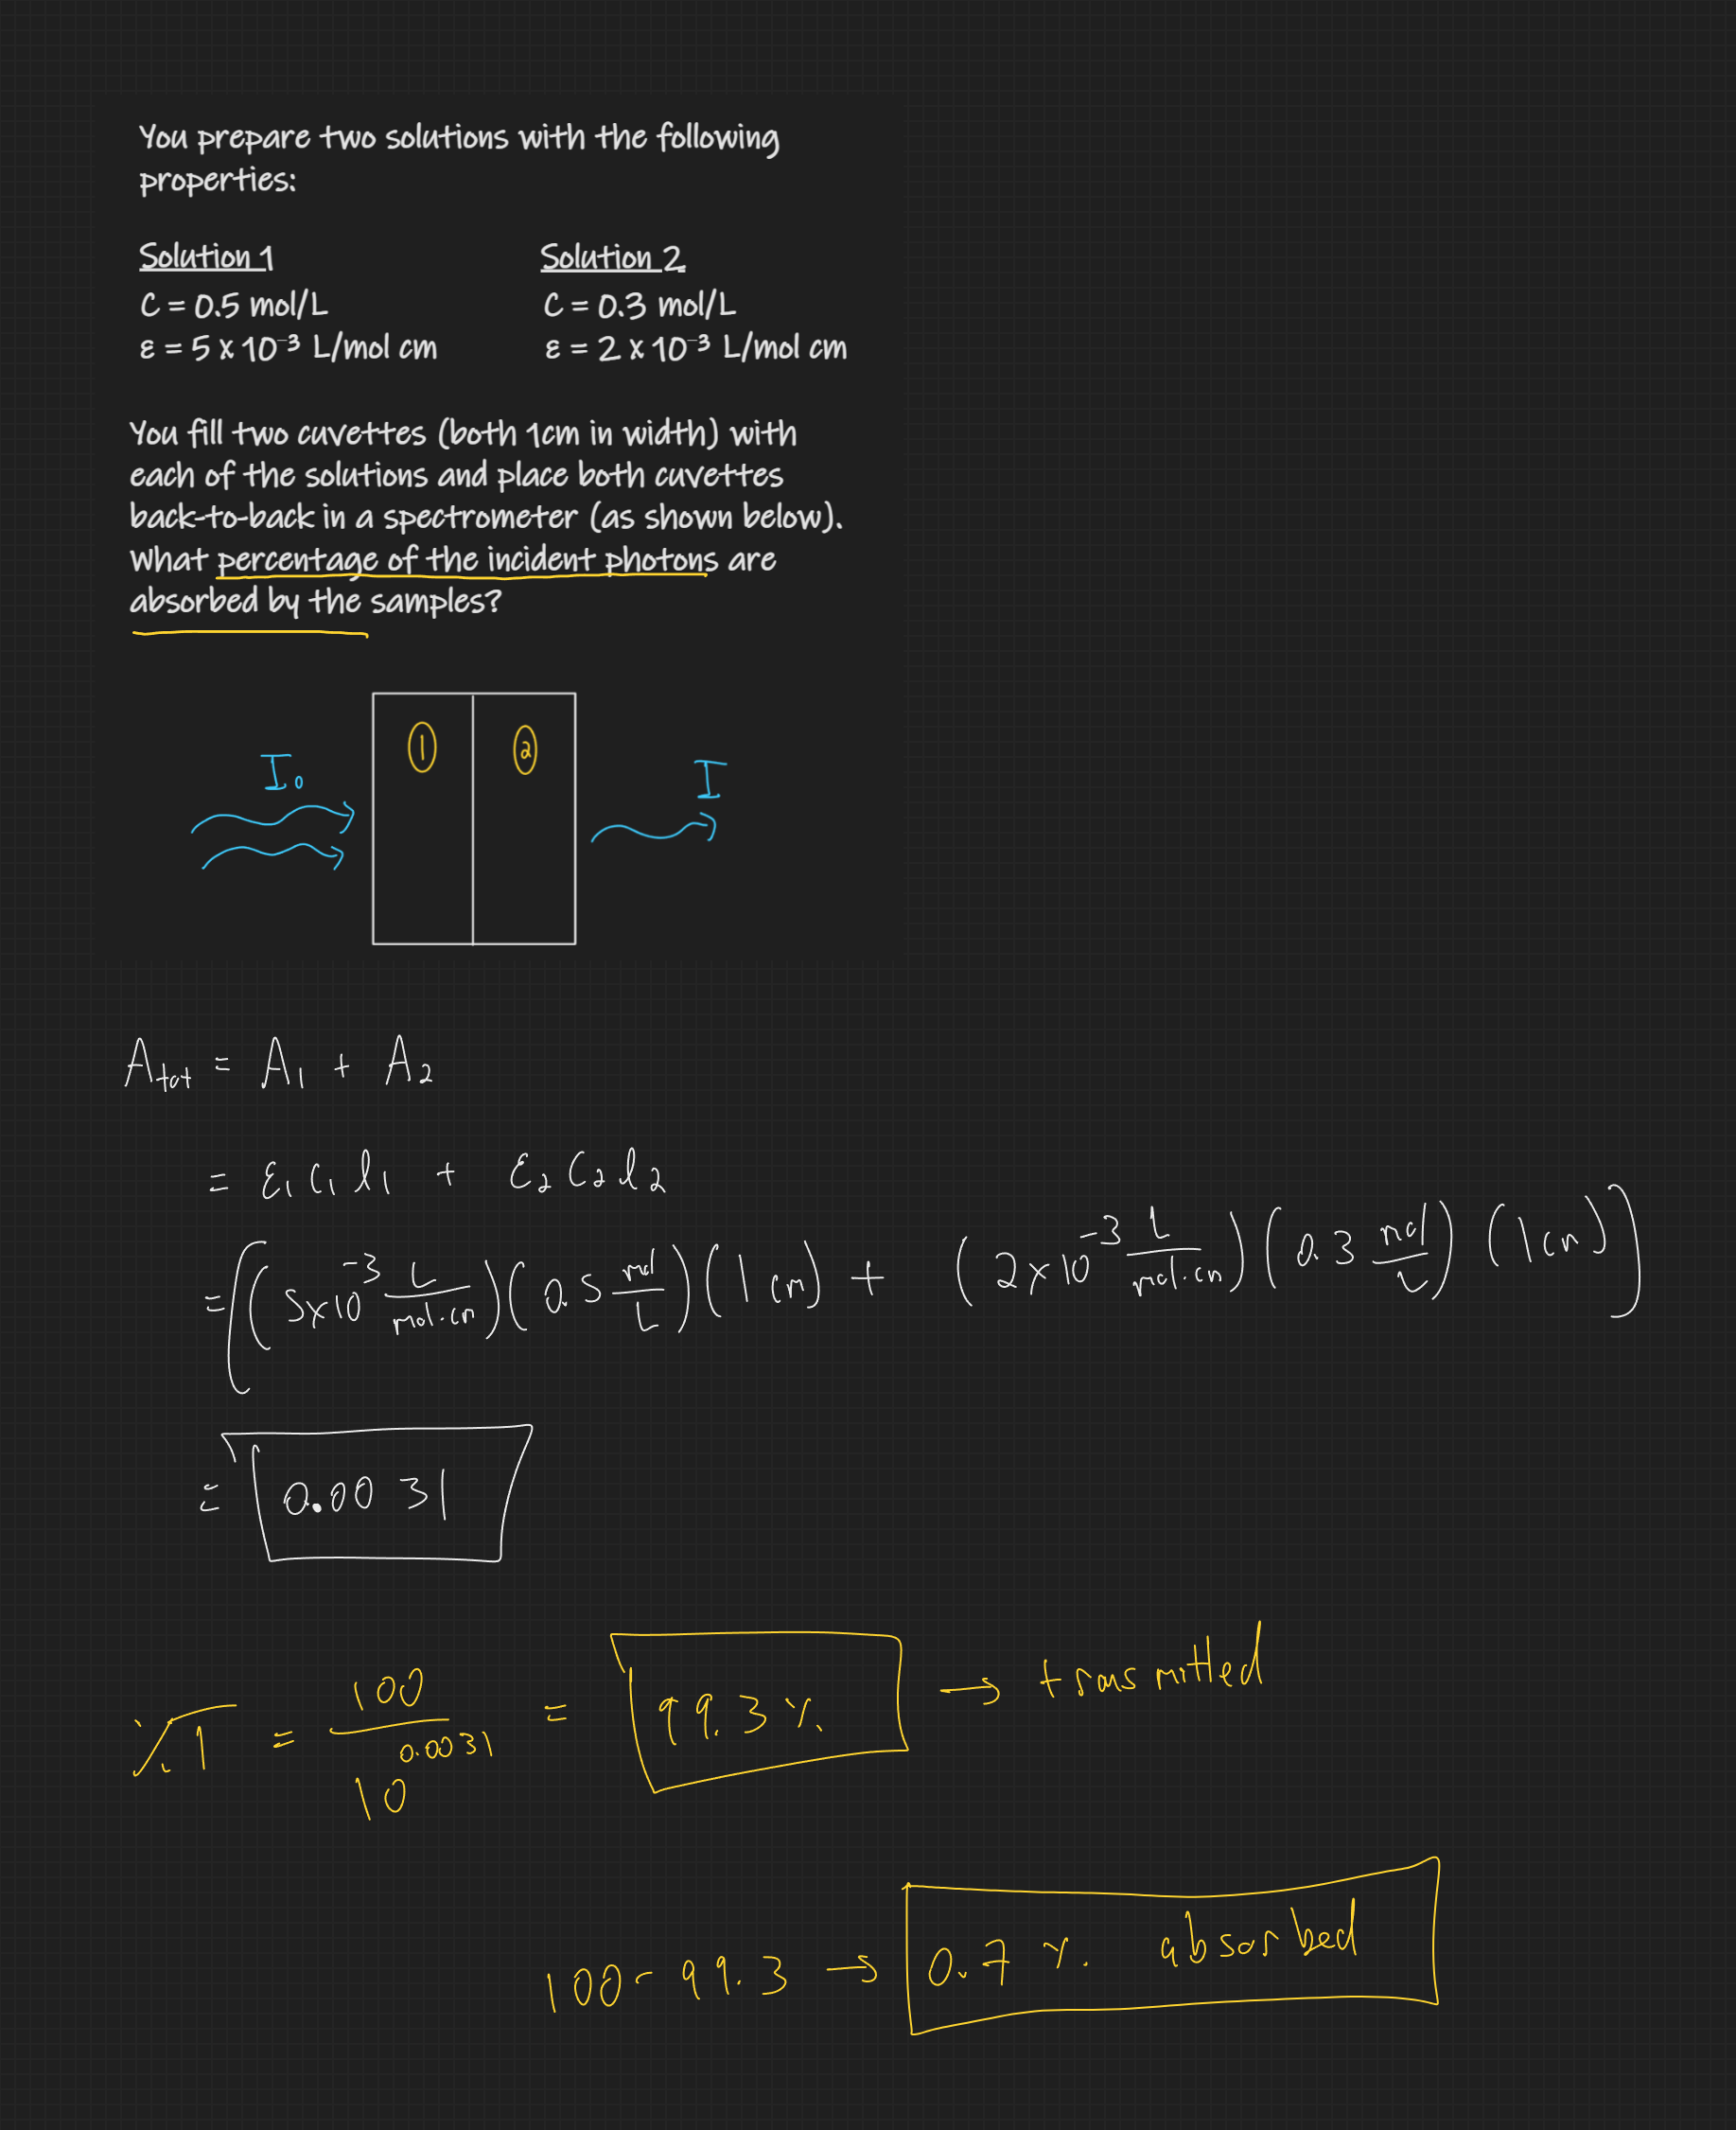 You prepare two solutions with the following
properties:
Solution 1
C = 0.5 mol/L
ε = 5 x 10⁻³ L/mol cm
Solution 2
C = 0.3 mol/L
ε = 2 x 10⁻³ L/mol cm
You fill two cuvettes (both 1cm in width) with
each of the solutions and place both cuvettes
back-to-back in a spectrometer (as shown below).
What percentage of the incident photons are
absorbed by the samples?
I₀ 1 2 I
A_tot = A₁ + A₂
= ε₁ c₁ l₁ + ε₂ c₂ l₂
= ((5x10⁻³ L/mol·cm)(0.5 mol/L)(1 cm) + (2x10⁻³ L/mol·cm)(0.3 mol/L)(1cm))
= 0.0031
%T = 100/10^0.0031 = 99.3% → transmitted
100 - 99.3 → 0.7% absorbed